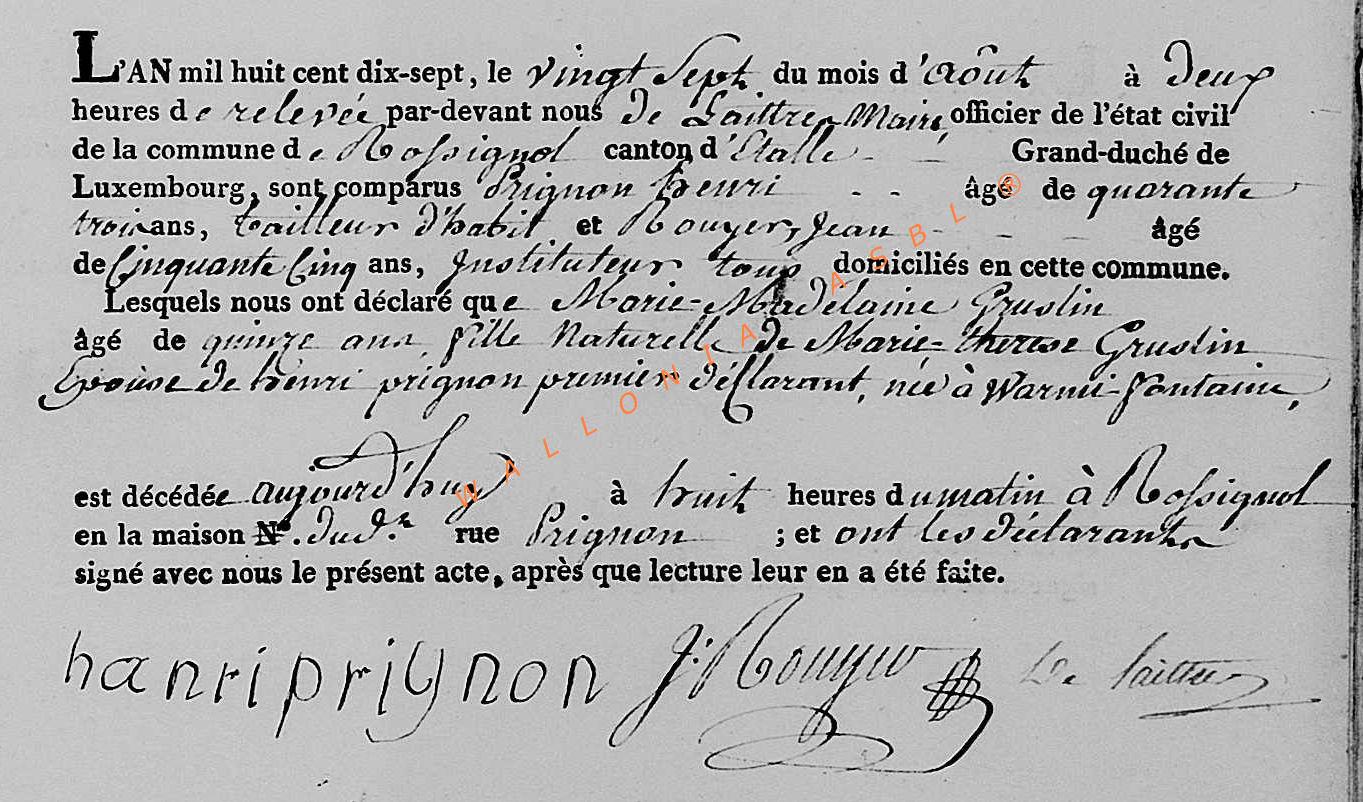 L'AN mil huit cent dix-sept, le vingt Sept du mois d'aôut à deux
heures de relevée par-devant nous de Laittre Maire officier de l'état civil
de la commune de Rossignol canton d'Etalle - - Grand-duché de
Luxembourg, sont comparus Prignon henri - - âgé de quarante
trois ans, tailleur d'habit et Rouyer, Jean - - - âgé
de Cinquante Cinq ans, Instituteur tous domiciliés en cette commune.
Lesquels nous ont déclaré que Marie-Madelaine Gruslin
âgé de quinze ans, fille Naturelle de Marie-therese Gruslin
Epouse de henri prignon premier déclarant, née à Warmi-fontaine,
est décédée aujourd'huy à huit heures du matin à Rossignol
en la maison N°. dud.r rue Prignon ; et ont les déclarants
signé avec nous le présent acte, après que lecture leur en a été faite.
hanri prignon J: Rouyer De Laittre
WALLONIA ASBL ®